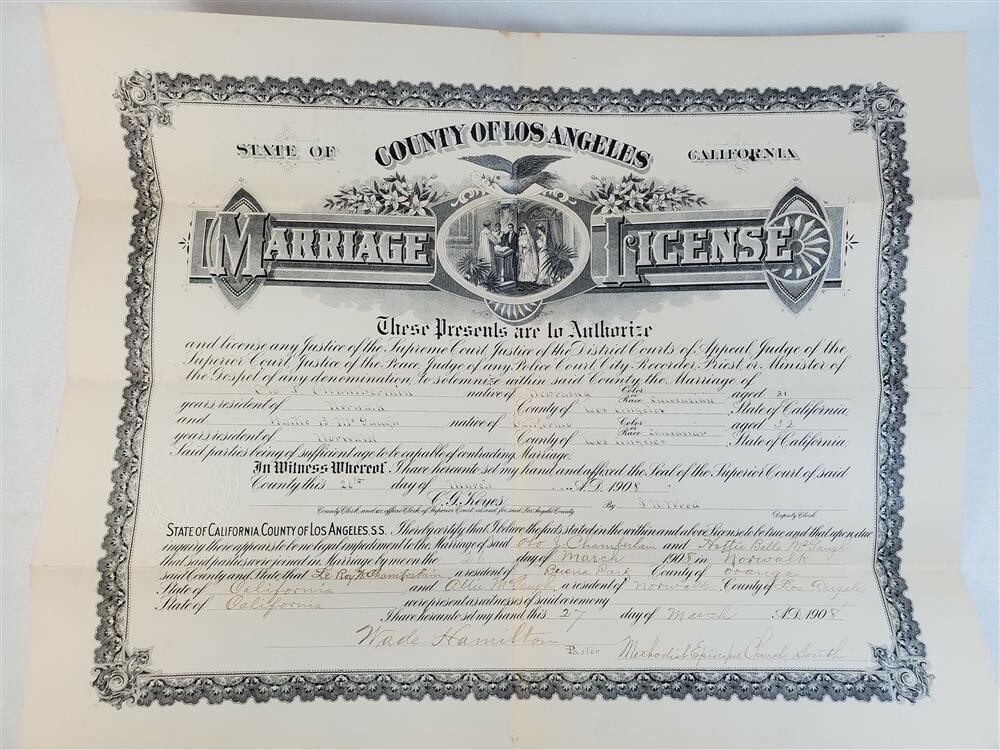 STATE OF COUNTY OF LOS ANGELES CALIFORNIA
MARRIAGE LICENSE
These Presents are to Authorize
and license any Justice of the Supreme Court, Justice of the District Courts of Appeal, Judge of the
Superior Court, Justice of the Peace, Judge of any Police Court, City Recorder, Priest, or Minister of
the Gospel of any denomination, to solemnize within said County, the Marriage of
Chamberlain native of Nebraska Color or Race Caucasian aged 31
years resident of Norwalk County of Los Angeles, State of California
and Hattie B McGaugh native of California Color or Race Caucasian aged 32
years resident of Norwalk County of Los Angeles, State of California
Said parties being of sufficient age to be capable of contracting Marriage.
In Witness Whereof, I have hereunto set my hand and affixed the Seal of the Superior Court of said
County this 26th day of March A.D. 1908
C. G. Keyes By Wood
County Clerk and ex officio Clerk of Superior Court in and for said Los Angeles County Deputy Clerk
STATE OF CALIFORNIA, COUNTY OF LOS ANGELES S.S. I hereby certify that I believe the facts stated in the within and above License to be true and that upon due
inquiry there appears to be no legal impediment to the Marriage of said J. Chamberlain and Hattie Belle McGaugh
that said parties were joined in Marriage by me on the day of March 1908 in Norwalk
said County and State that Le Roy W Chamberlain a resident of Buena Park County of Orange
State of California and Ollie McGaugh, a resident of Norwalk, County of Los Angeles
State of California were present as witnesses of said ceremony
I have hereunto set my hand this 27 day of March A.D. 1908
Wade Hamilton
Pastor Methodist Episcopal Church, South